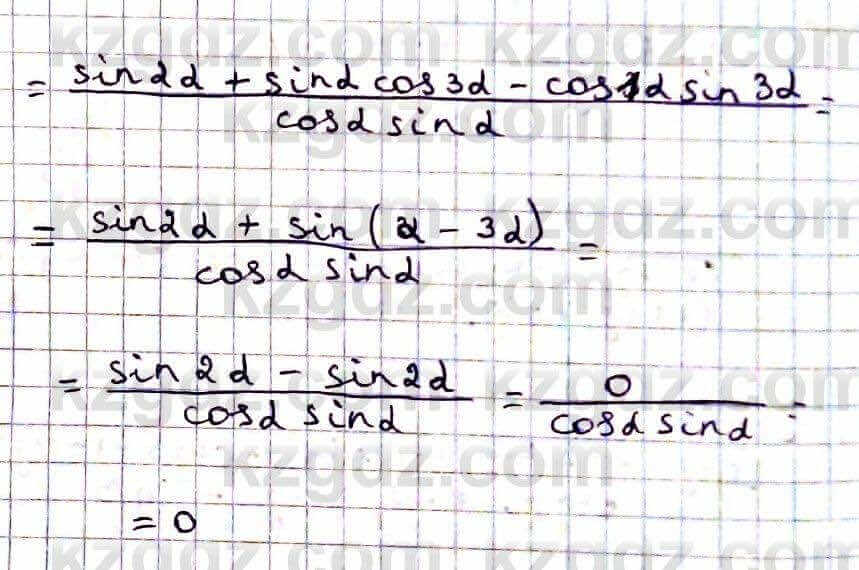 = (sin2α + sinα cos3α - cosα sin3α) / (cosα sinα) =
= (sin2α + sin(α - 3α)) / (cosα sinα) =
= (sin2α - sin2α) / (cosα sinα) = 0 / (cosα sinα) =
= 0
kzgdz.com